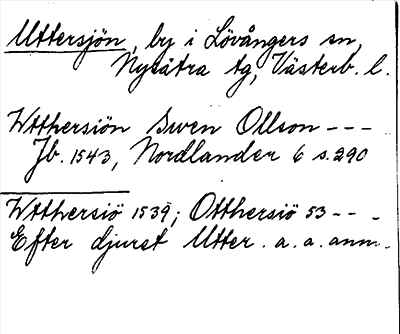 Uttersjön, by i Lövångers sn,
Nysätra tg, Västerb. l.
Wtthersiön Swen Ollson - - -
Jb. 1543, Nordlander 6 s. 290
Wtthersiö 1539; Otthersiö 53 - - -
Efter djuret Utter. a. a. anm.